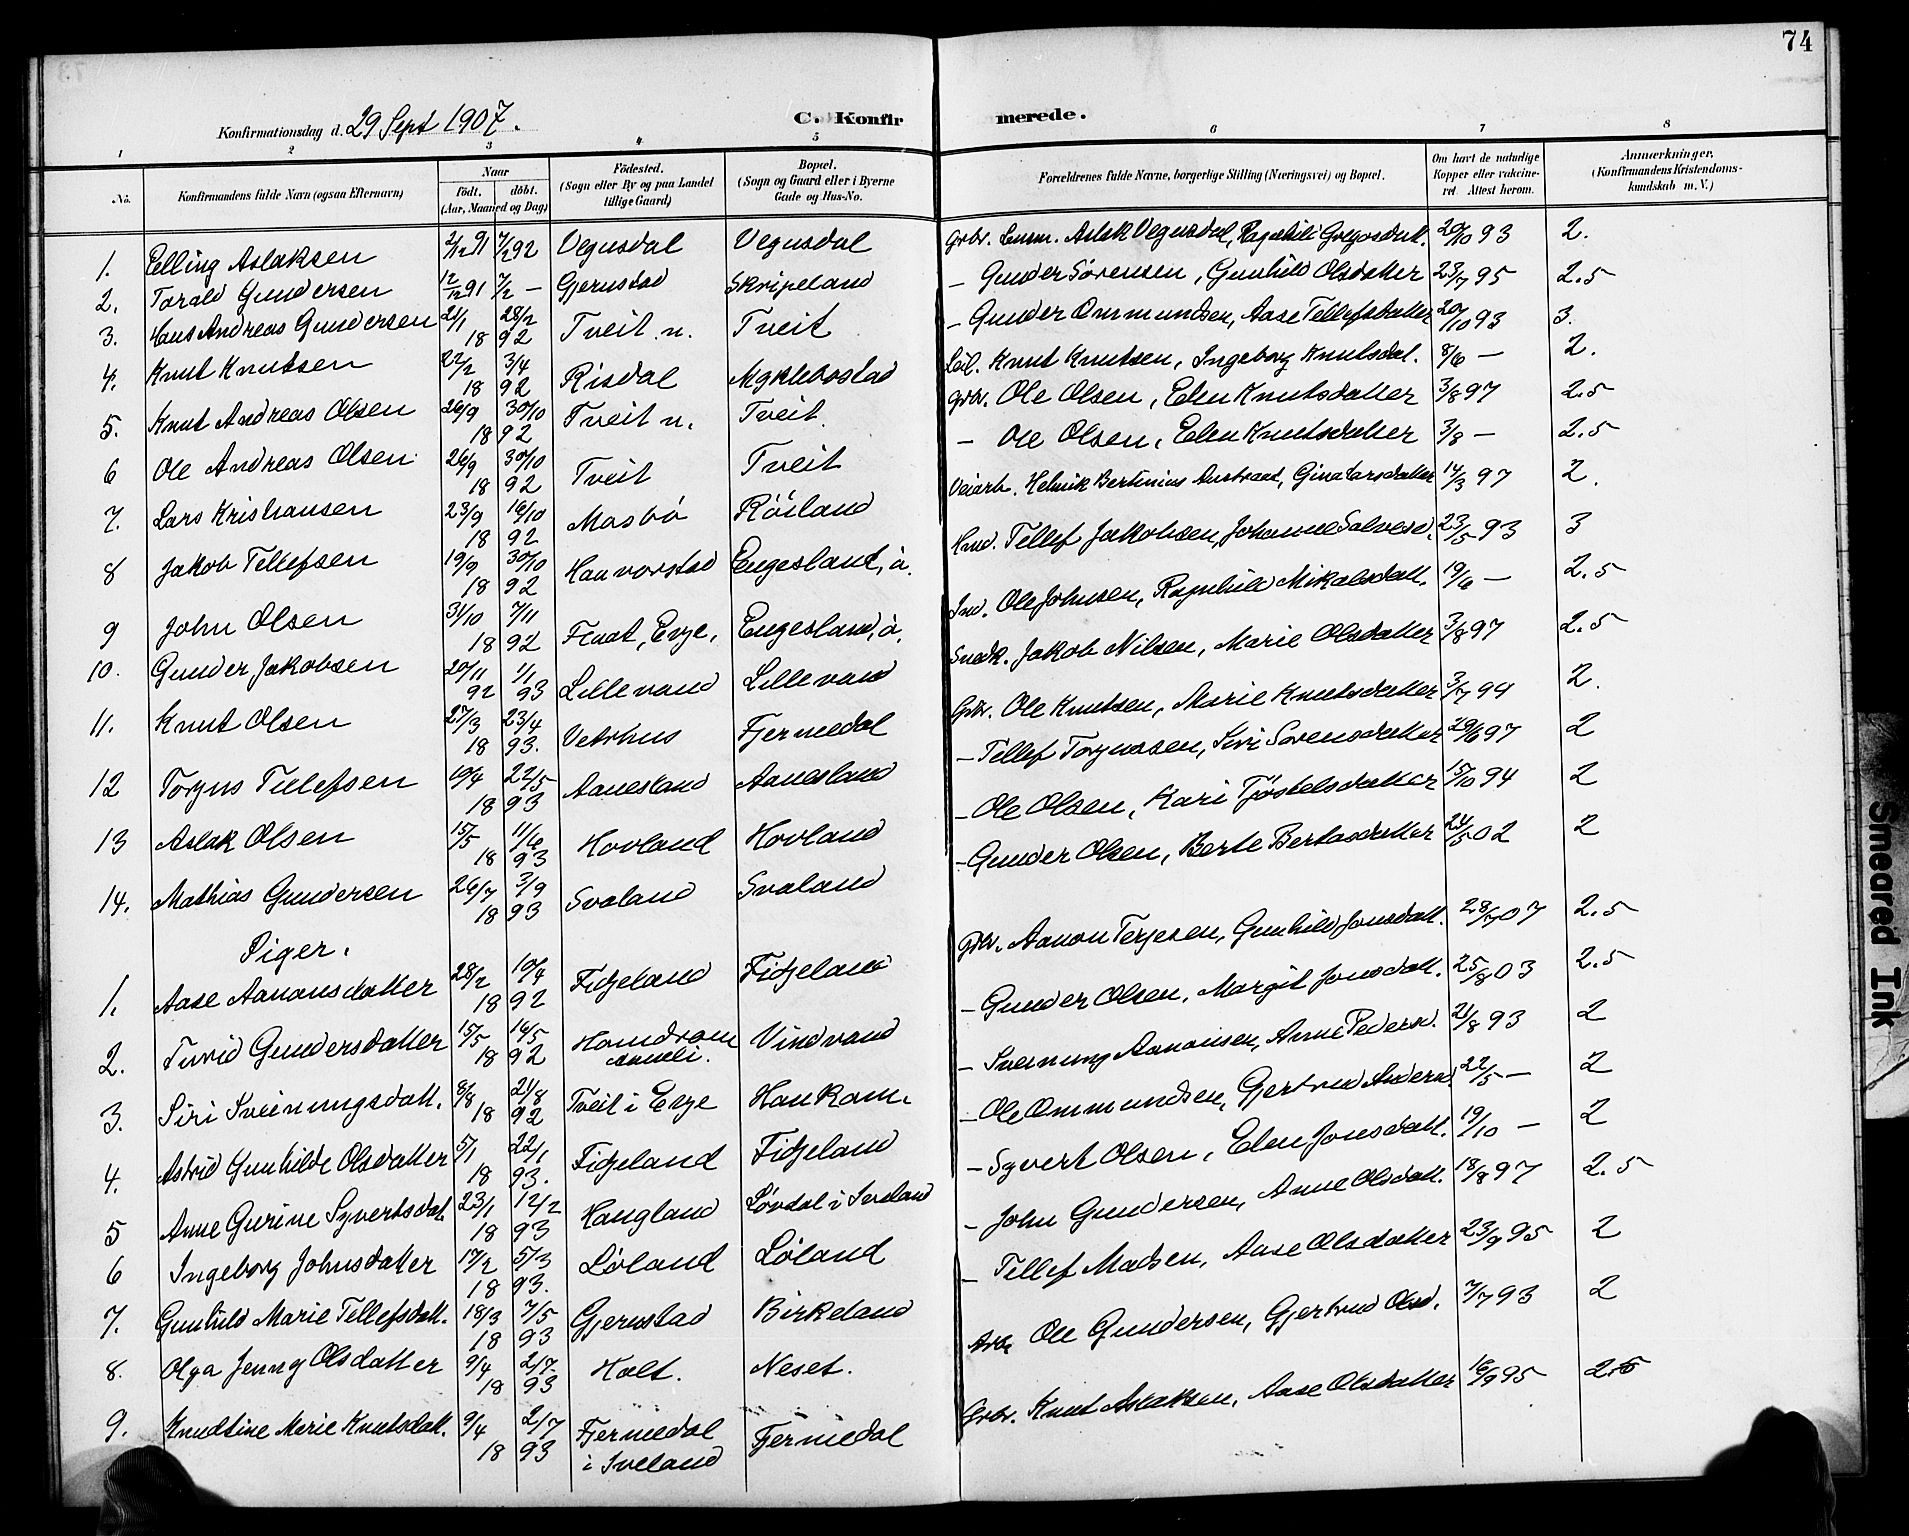 74
Konfirmationsdag d. 29 Sept 1907.
C. Konfirmerede.
1 2 3 4 5 6 7 8
No. Konfirmandens fulde Navn (ogsaa Efternavn) Naar født. døbt. (Aar, Maaned og Dag) Fødested. (Sogn eller By og paa Landet tillige Gaard) Bopæl. (Sogn og Gaard eller i Byerne Gade og Hus-No. Forældrenes fulde Navne, borgerlige Stilling (Næringsvei) og Bopæl. Om havt de naturlige Kopper eller vakcineret. Attest herom. Anmærkninger. (Konfirmandens Kristendomskundskab m. V.)
1. Elling Aslaksen 2/12 91 7/2 92 Vegusdal Vegusdal Grbr. Lensm. Aslak Vegusdal, 20/10 93 2.
2. Torald Gundersen 12/12 91 7/2 — Gjerustad Skripeland — Gunder Sørensen, Gunhild Olsdatter 23/7 95 2.5
3. Hans Andreas Gundersen 21/1 28/2 1892 Tveit n. Tveit — Gunder Ommundsen, Aase Tellefsdatter 20/10 93 3.
4. Knut Knutsen 22/2 3/4 1892 Risdal Myklebostad Leil. Knut Knutsen, Ingeborg Knutsdat. 8/6 — 2.
5. Knut Andreas Olsen 26/9 30/10 1892 Tveit n. Tveit. grbr. Ole Olsen, Elen Knutsdatter 3/8 97 2.5
6 Ole Andreas Olsen 26/9 30/10 1892 Tveit Tveit — Ole Olsen, Elen Knutsdatter 3/8 — 2.5
7. Lars Kristiansen 23/9 16/10 1892 Mosbö Röiland Veiarb. Helmik Bertinius Austraat, Gina Larsdatter 14/3 97 2.
8 Jakob Tellefsen 19/9 30/10 1892 Hanvorstad Engesland, ö. Hmd. Tellef Jakobsen, Johanne Salvesd. 23/5 93 3
9 John Olsen 31/10 7/11 1892 Evje, Engesland, ö. Ind. Ole Johnsen, Ragnhild Mikalsdatt. 19/6 — 2.5
10. Gunder Jakobsen 20/11 92 1/1 93 Lillevand Lillevand Snedk. Jakob Nilsen, Marie Olsdatter 3/8 97 2.5
11. Knut Olsen 27/3 23/4 1893. Vetrhus Fjermedal Grbr. Ole Knutsen, Marie Knutsdatter 3/7 94 2.
12 Torjus Tellefsen 19/4 22/5 1893 Aanesland Aanesland — Tellef Torjussen, Siri Sørensdatter 29/6 97 2
13 Aslak Olsen 15/5 11/6 1893 Hovland Hovland — Ole Olsen, Kari Tjøstelsdatter 15/10 94 2
14. Mathias Gundersen 26/7 3/9 1893 Svaland Svaland — Gunder Olsen, Berte Bertasdatter 24/5 02 2
Piger.
1. Aase Aanonsdatter 28/2 10/4 1892 Fidjeland Fidjeland Grbr. Aanon Terjesen, Gunhild Jonsdatt. 28/7 07 2.5
2. Turid Gundersdatter 15/5 16/5 1892 Vindvand — Gunder Olsen, Margit Jonsdatt. 25/8 03 2.5
3. Siri Sveinungsdatt. 8/8 21/8 1892 Tveit i Evje Haukom. — Sveinung Aanonsen, Anne Pedersd. 21/8 93 2
4. Astrid Gunhilde Olsdatter 5/1 22/1 1893. Fidjeland Fidjeland — Ole Ommundsen, Gjertrud Andersd. 22/5 — 2
5 Anne Gurine Syvertsdat. 23/1 12/2 1893 Haugland Løvdal i Iveland — Syvert Olsen, Elen Jonsdatt. 19/10 — 2
6 Ingeborg Johnsdatter 17/2 5/3 1893. Løland Løland — John Gundersen, Anne Olsdatt. 18/8 97 2.5
7. Gunhild Marie Tellefsdatt. 18/3 7/5 1893 Gjerustad Birkeland — Tellef Madsen, Aase Olsdatter 23/9 95 2
8. Olga Jenny Olsdatter 9/4 2/7 1893 Holt. Neset. Arb. Ole Gundersen, Gjertrud Olsd. 7/7 93 2
9. Knudtine Marie Knutsdatt. 9/4 2/7 1893 Fjermedal i Iveland Fjermedal Grbr. Knut Aslaksen, Aase Olsdatter 16/9 95 2.5
Smeared Ink